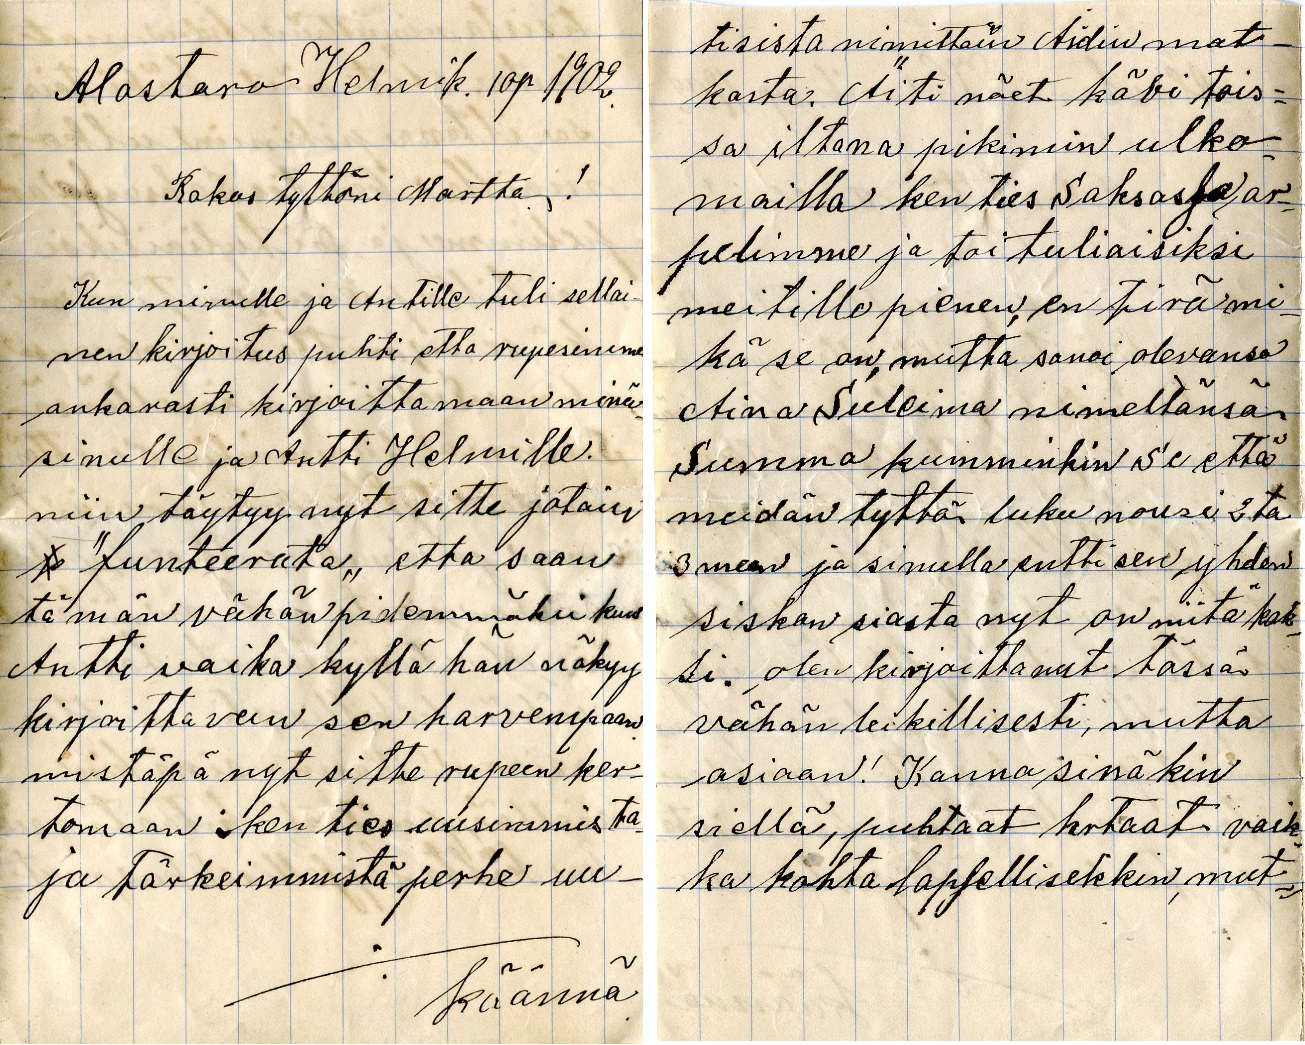 Alastaro Helmik. 10p 1902.
Rakas tyttöni Martta!
Kun minulle ja Antille tuli sellai-
nen kirjoitus puhti etta rupesimme
ankarasti kirjoittamaan minä
sinulle ja Antti Helmille.
niin täytyy nyt sitte jotain
"funteerata„ etta saan
tämän vähän pidemmäksi kuin
Antti vaika kyllä hän näkyy
kirjoittavan sen harvempaan
mistäpä nyt sitte rupeen ker-
tomaan ken ties uusimmista
ja tärkeimmistä perhe uu-
käännä
tisista nimittäin Äidin mat-
kasta. Äiti näet käbi tois=
sa iltana pikimin ulko-
mailla ken ties Saksassa ar-
pelimme ja toi tuliaisiksi
meitille pienen, en tirä mi-
kä se on, mutta sanoi olevansa
Aina Suleima nimeltänsä
Summa kumminkin se että
meidän tyttö luku nousi 2 ta
3 meen ja sinulla enttisen yhden
siskon siasta nyt on niitä kak-
si. olen kirjoittanut tässä
vähän leikillisesti, mutta
asiaan! Kanna sinäkin
siellä, puhtaat hrtaat vaik-
ka kohta lapsellisekkin, mut=